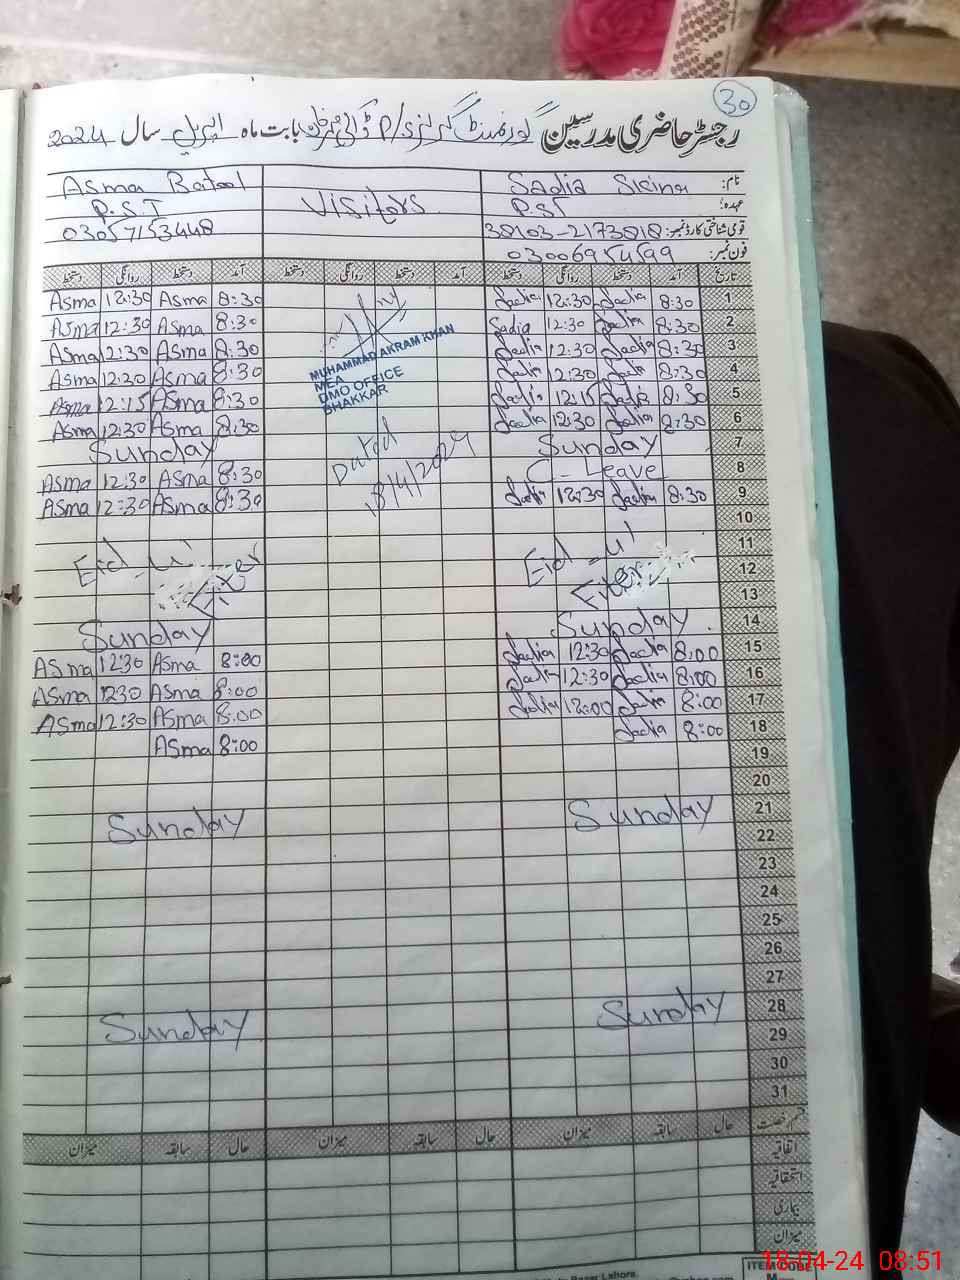 30
رجسٹر حاضری مدرسین گورنمنٹ گرلز بابت ماہ اپریل سال 2024
نام: Sadia Visitors Asma Batool
عہدہ: P.ST P.S.T
قومی شناختی کارڈ نمبر: 38103-2173818 03057153448
فون نمبر: 03006954599
تاریخ آمد دستخط روانگی دستخط آمد دستخط روانگی دستخط آمد دستخط روانگی دستخط
Asma 12:30 Asma 8:30 Sadia 12:30 Sadia 8:30 1
Asma 12:30 Asma 8:30 Sadia 12:30 Sadia 8:30 2
Asma 12:30 Asma 8:30 Sadia 12:30 Sadia 8:30 3
Asma 12:30 Asma 8:30 Sadia 12:30 Sadia 8:30 4
Asma 12:15 Asma 8:30 Sadia 12:15 Sadia 8:30 5
Asma 12:30 Asma 8:30 Sadia 12:30 Sadia 8:30 6
MUHAMMAD AKRAM KHAN
MEA
DMO OFFICE
BHAKKAR
Sunday Sunday 7
Asma 12:30 Asma 8:30 C-Leave 8
Asma 12:30 Asma 8:30 Sadia 12:30 Sadia 8:30 9
Dated
18/4/2024
10
Eid-ul Eid-ul 11
Fiter Fiter 12
13
Sunday Sunday 14
Asma 12:30 Asma 8:00 Sadia 12:30 Sadia 8:00 15
Asma 1230 Asma 8:00 Sadia 12:30 Sadia 8:00 16
Asma 12:30 Asma 8:00 Sadia 12:00 Sadia 8:00 17
Asma 8:00 Sadia 8:00 18
19
20
Sunday Sunday 21
22
23
24
25
26
27
Sunday Sunday 28
29
30
31
قسم رخصت حال سابقہ میزان حال سابقہ میزان حال سابقہ میزان
اتفاقیہ
استحقاقیہ
بیماری
میزان
Bazar Lahore.
ITEM CODE
18-04-24 08:51